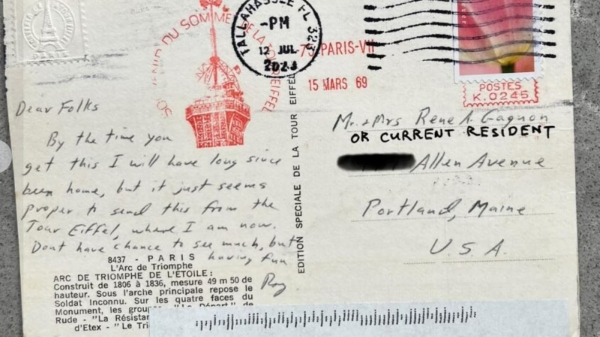 TALLAHASSEE FL 323
-PM
12 JUL
2023
DU SOMMET DE LA TOUR EIFFEL
75-PARIS-VII
15 MARS 69
POSTES
K.0245
Dear Folks
By the time you
get this I will have long since
been home, but it just seems
proper to send this from the
Tour Eiffel, where I am now.
Dont have chance to see much, but
having fun
Roy
8437 - PARIS
L'Arc de Triomphe
ARC DE TRIOMPHE DE L'ÉTOILE :
Construit de 1806 à 1836, mesure 49 m 50 de
hauteur. Sous l'arche principale repose le
Soldat Inconnu. Sur les quatre faces du
Monument, les groupes "Le Départ" de
Rude - "La Résistance
d'Etex - "Le Tri
EDITION SPECIALE DE LA TOUR EIFFEL
Mr. & Mrs Rene A. Gagnon
OR CURRENT RESIDENT
Allen Avenue
Portland, Maine
U.S.A.